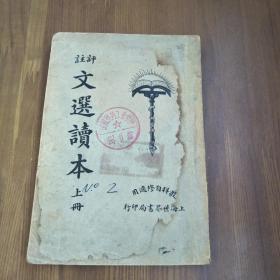 評註
文選讀本
上冊
No 2
教科自修適用
上海世界書局印行